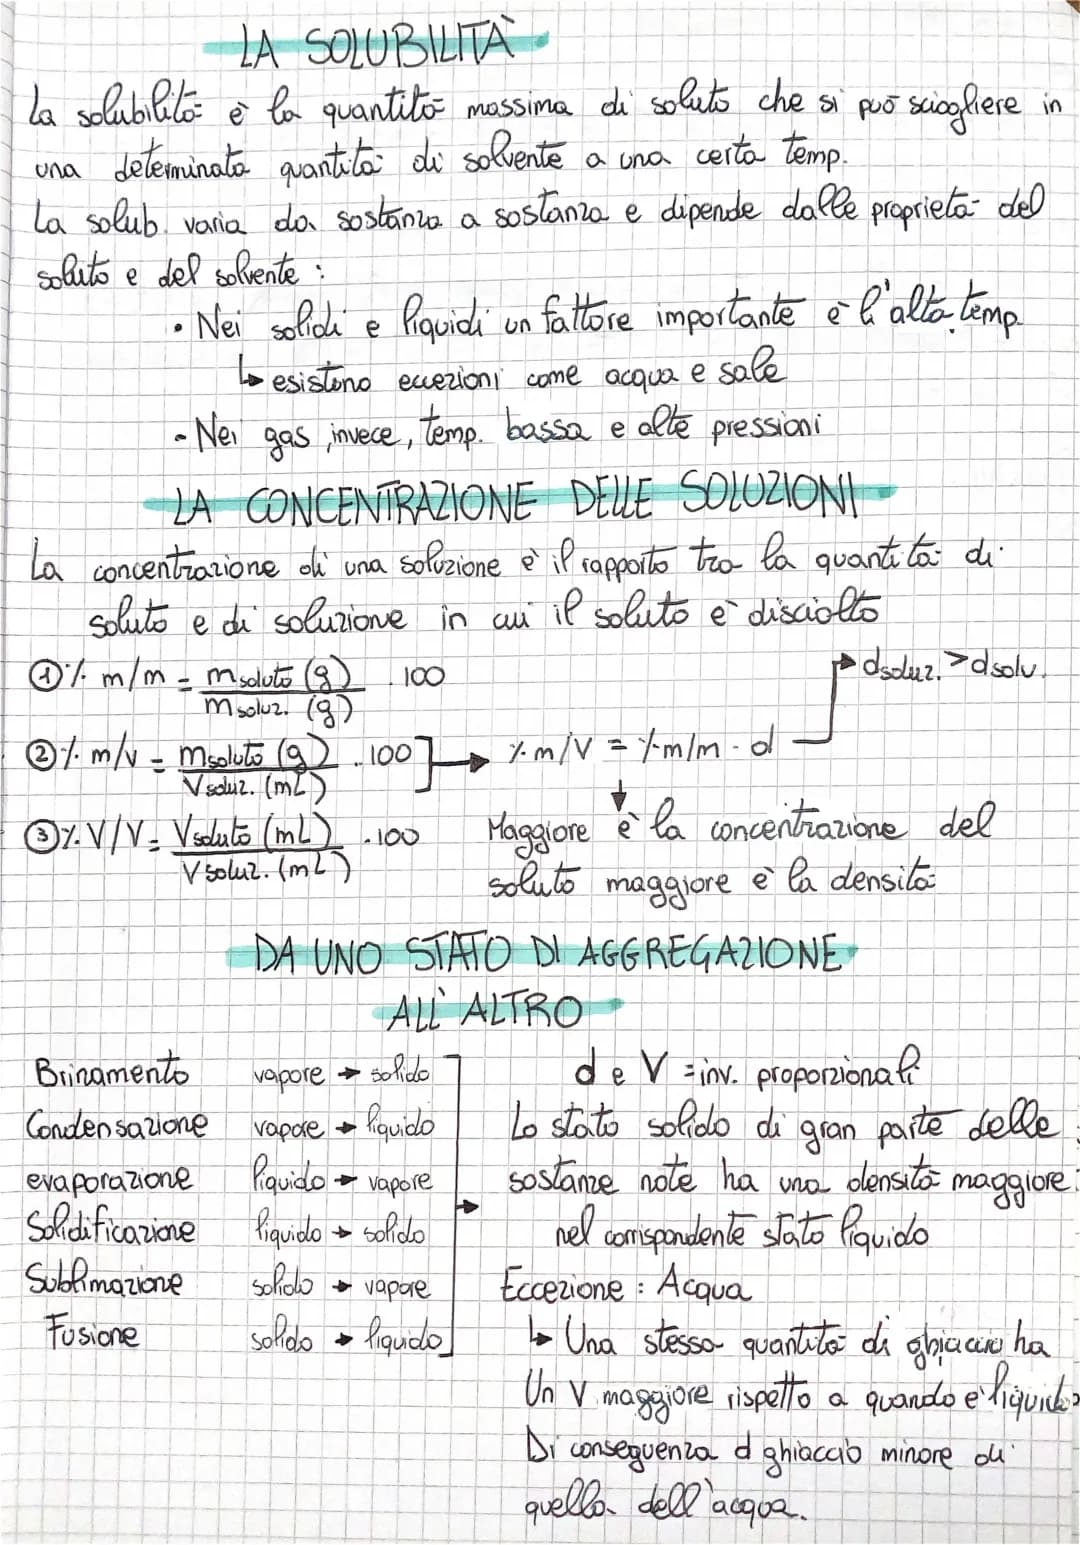 LA SOLUBILITÀ
La solubilità è la quantità massima di soluto che si può sciogliere in
una determinata quantità di solvente a una certa temp.
La solub. varia da sostanza a sostanza e dipende dalle proprietà del
soluto e del solvente :
• Nei solidi e liquidi un fattore importante è l'alta temp.
↳ esistono eccezioni come acqua e sale
- Nei gas, invece, temp. bassa e alte pressioni
LA CONCENTRAZIONE DELLE SOLUZIONI
La concentrazione di una soluzione è il rapporto tra la quantità di
soluto e di soluzione in cui il soluto è disciolto
① % m/m = m soluto (g) / m soluz. (g) · 100
→ dsoluz. > dsolv.
② % m/v = msoluto (g) / V soluz. (mL) · 100 ] → % m/V = % m/m · d
③ % V/V = Vsoluto (mL) / V soluz. (mL) · 100
Maggiore è la concentrazione del
soluto maggiore è la densità
DA UNO STATO DI AGGREGAZIONE
ALL'ALTRO
Brinamento vapore → solido
Condensazione vapore → liquido
evaporazione liquido → vapore
Solidificazione liquido → solido
Sublimazione solido → vapore
Fusione solido → liquido
d e V = inv. proporzionali
Lo stato solido di gran parte delle
sostanze note ha una densità maggiore
nel corrispondente stato liquido
Eccezione : Acqua
↳ Una stessa quantità di ghiaccio ha
Un V maggiore rispetto a quando è liquida
Di conseguenza d ghiaccio minore di
quella dell'acqua.